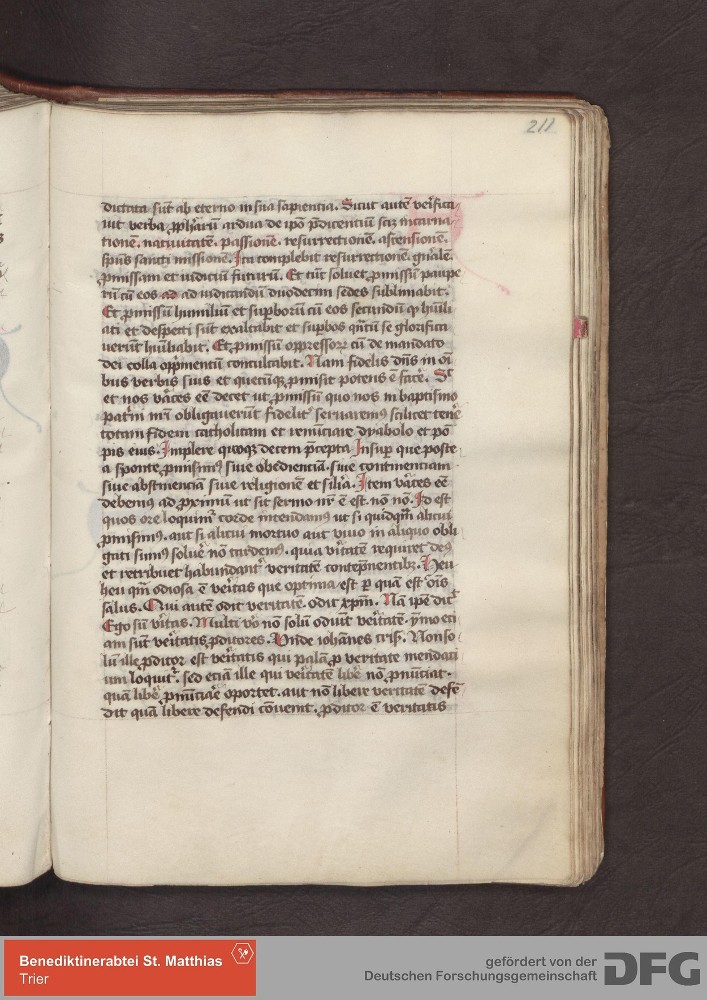 211
dictata sūt ab eterno in sua sapientia. Sicut autē verifica
uit verba ꝓphetarū ardua de ipō p̄dicentiū scꝫ incarna
tionē. natiuitatē. passionē. resurrectionē. ascensionē.
spūs sancti missionē. Ita complebit resurrectionē. gn̄alē.
ꝓmissam et iudiciū futurū. Et tūc soluet ꝓmissū paupe
rū cū eos ad ad iudicandū duodecim sedes sublimabit.
Et ꝓmissū humiliū et suꝑborū cū eos secundū ꝙ hūili
ati et despecti sūt exaltabit et suꝑbos qn̄tū se glorifica
uerūt hūiliabit. Et ꝓmissū oppressorꝝ cū de mandato
dei colla opp̄mentiū conculcabit. Nam fidelis dn̄s in oī
bus verbis suis et quecūqꝫ ꝓmisit potens ē facē. Sic
et nos v̄aces eē decet ut ꝓmissū quo nos in baptismo
patrī nr̄i obligauerūt fidelit᷑ seruaremꝰ scilicet tenē
totam fidem catholicam et renūciare dyabolo et pō
pis eius. Implere quoqꝫ decem p̄cepta. Insuꝑ que poste
a sponte ꝓmisimꝰ siue obedienciā. siue continenciam
siue abstinenciā siue religionē et sīlia. Item v̄aces eē
debemus ad ꝓximū ut sit sermo nr̄ ē est. nō nō. Id est
quos ore loquim᷑ corde intendamꝰ ut si quidqm̄ alicui
ꝓmisimꝰ. aut si alicui mortuo aut viuo in aliquo obli
gati sumꝰ soluē nō tardemꝰ. quia v̄itatē requiret deꝰ
et retribuet habundant᷑ veritatē contēpnentibꝫ. Heu
heu qm̄ odiosa ē veritas que optima est ꝑ quā est oīs
salus. Qui autē odit veritatē. odit xpm̄. Nā ip̄e dic̄
Ego sū v̄itas. Multi v̄o nō solū odiūt veritatē. ymo eci
am sūt veritatis ꝓditores. Vnde iohānes crīs. Non so
lū ille ꝓditor est veritatis qui palā ꝓ veritate mendaci
um loquit᷑. sed eciā ille qui veritatē libē nō ꝓnūciat.
quā libē ꝓnūciarē oportet. aut nō libere veritatē defē
dit quā libere defendi cōuenit. ꝓditor ē veritatis
Benediktinerabtei St. Matthias
Trier
gefördert von der
Deutschen Forschungsgemeinschaft
DFG